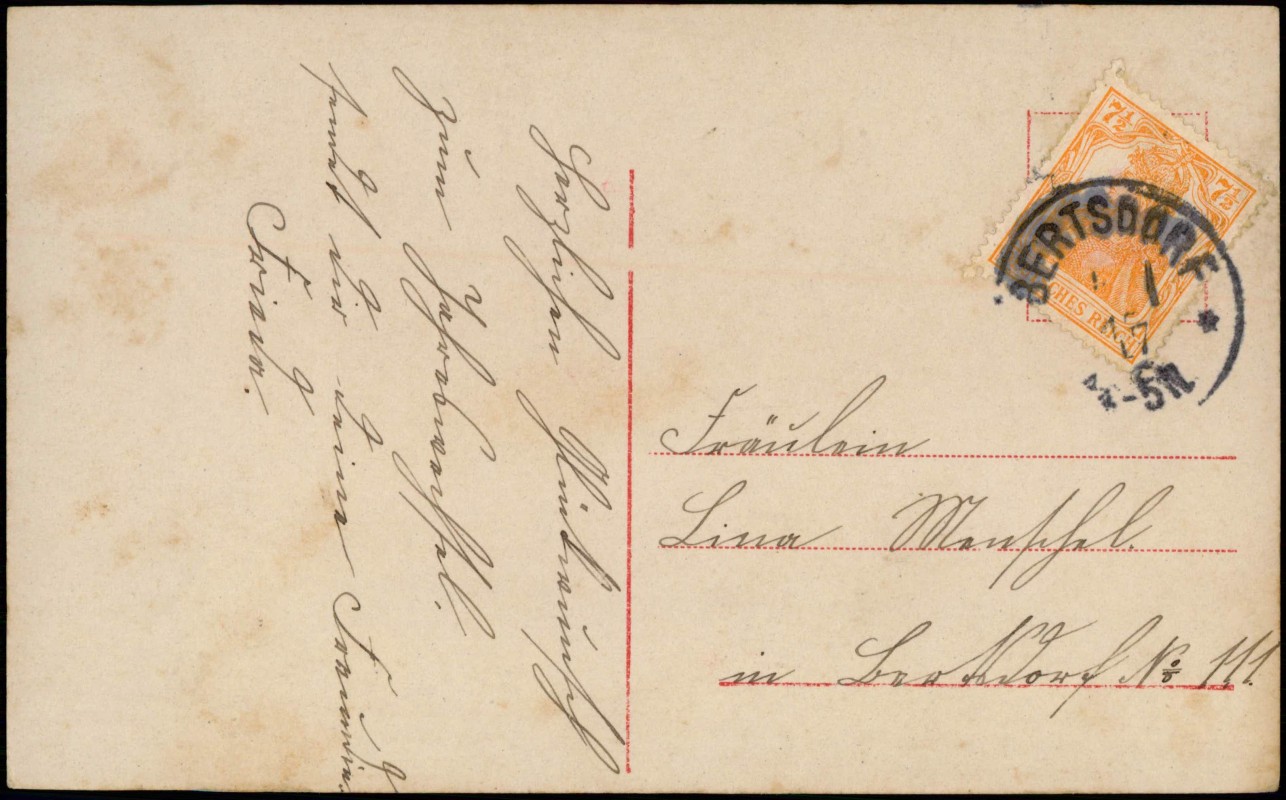 Herzlichen Glückwunsch
zum Jahreswechsel.
sendet dir deine Freundin
Frieda.
7½ 7½
CHES REICH
BERTSDORF
1
17
-5N
Fräulein
Lina Menschel.
in Bertsdorf No 111.